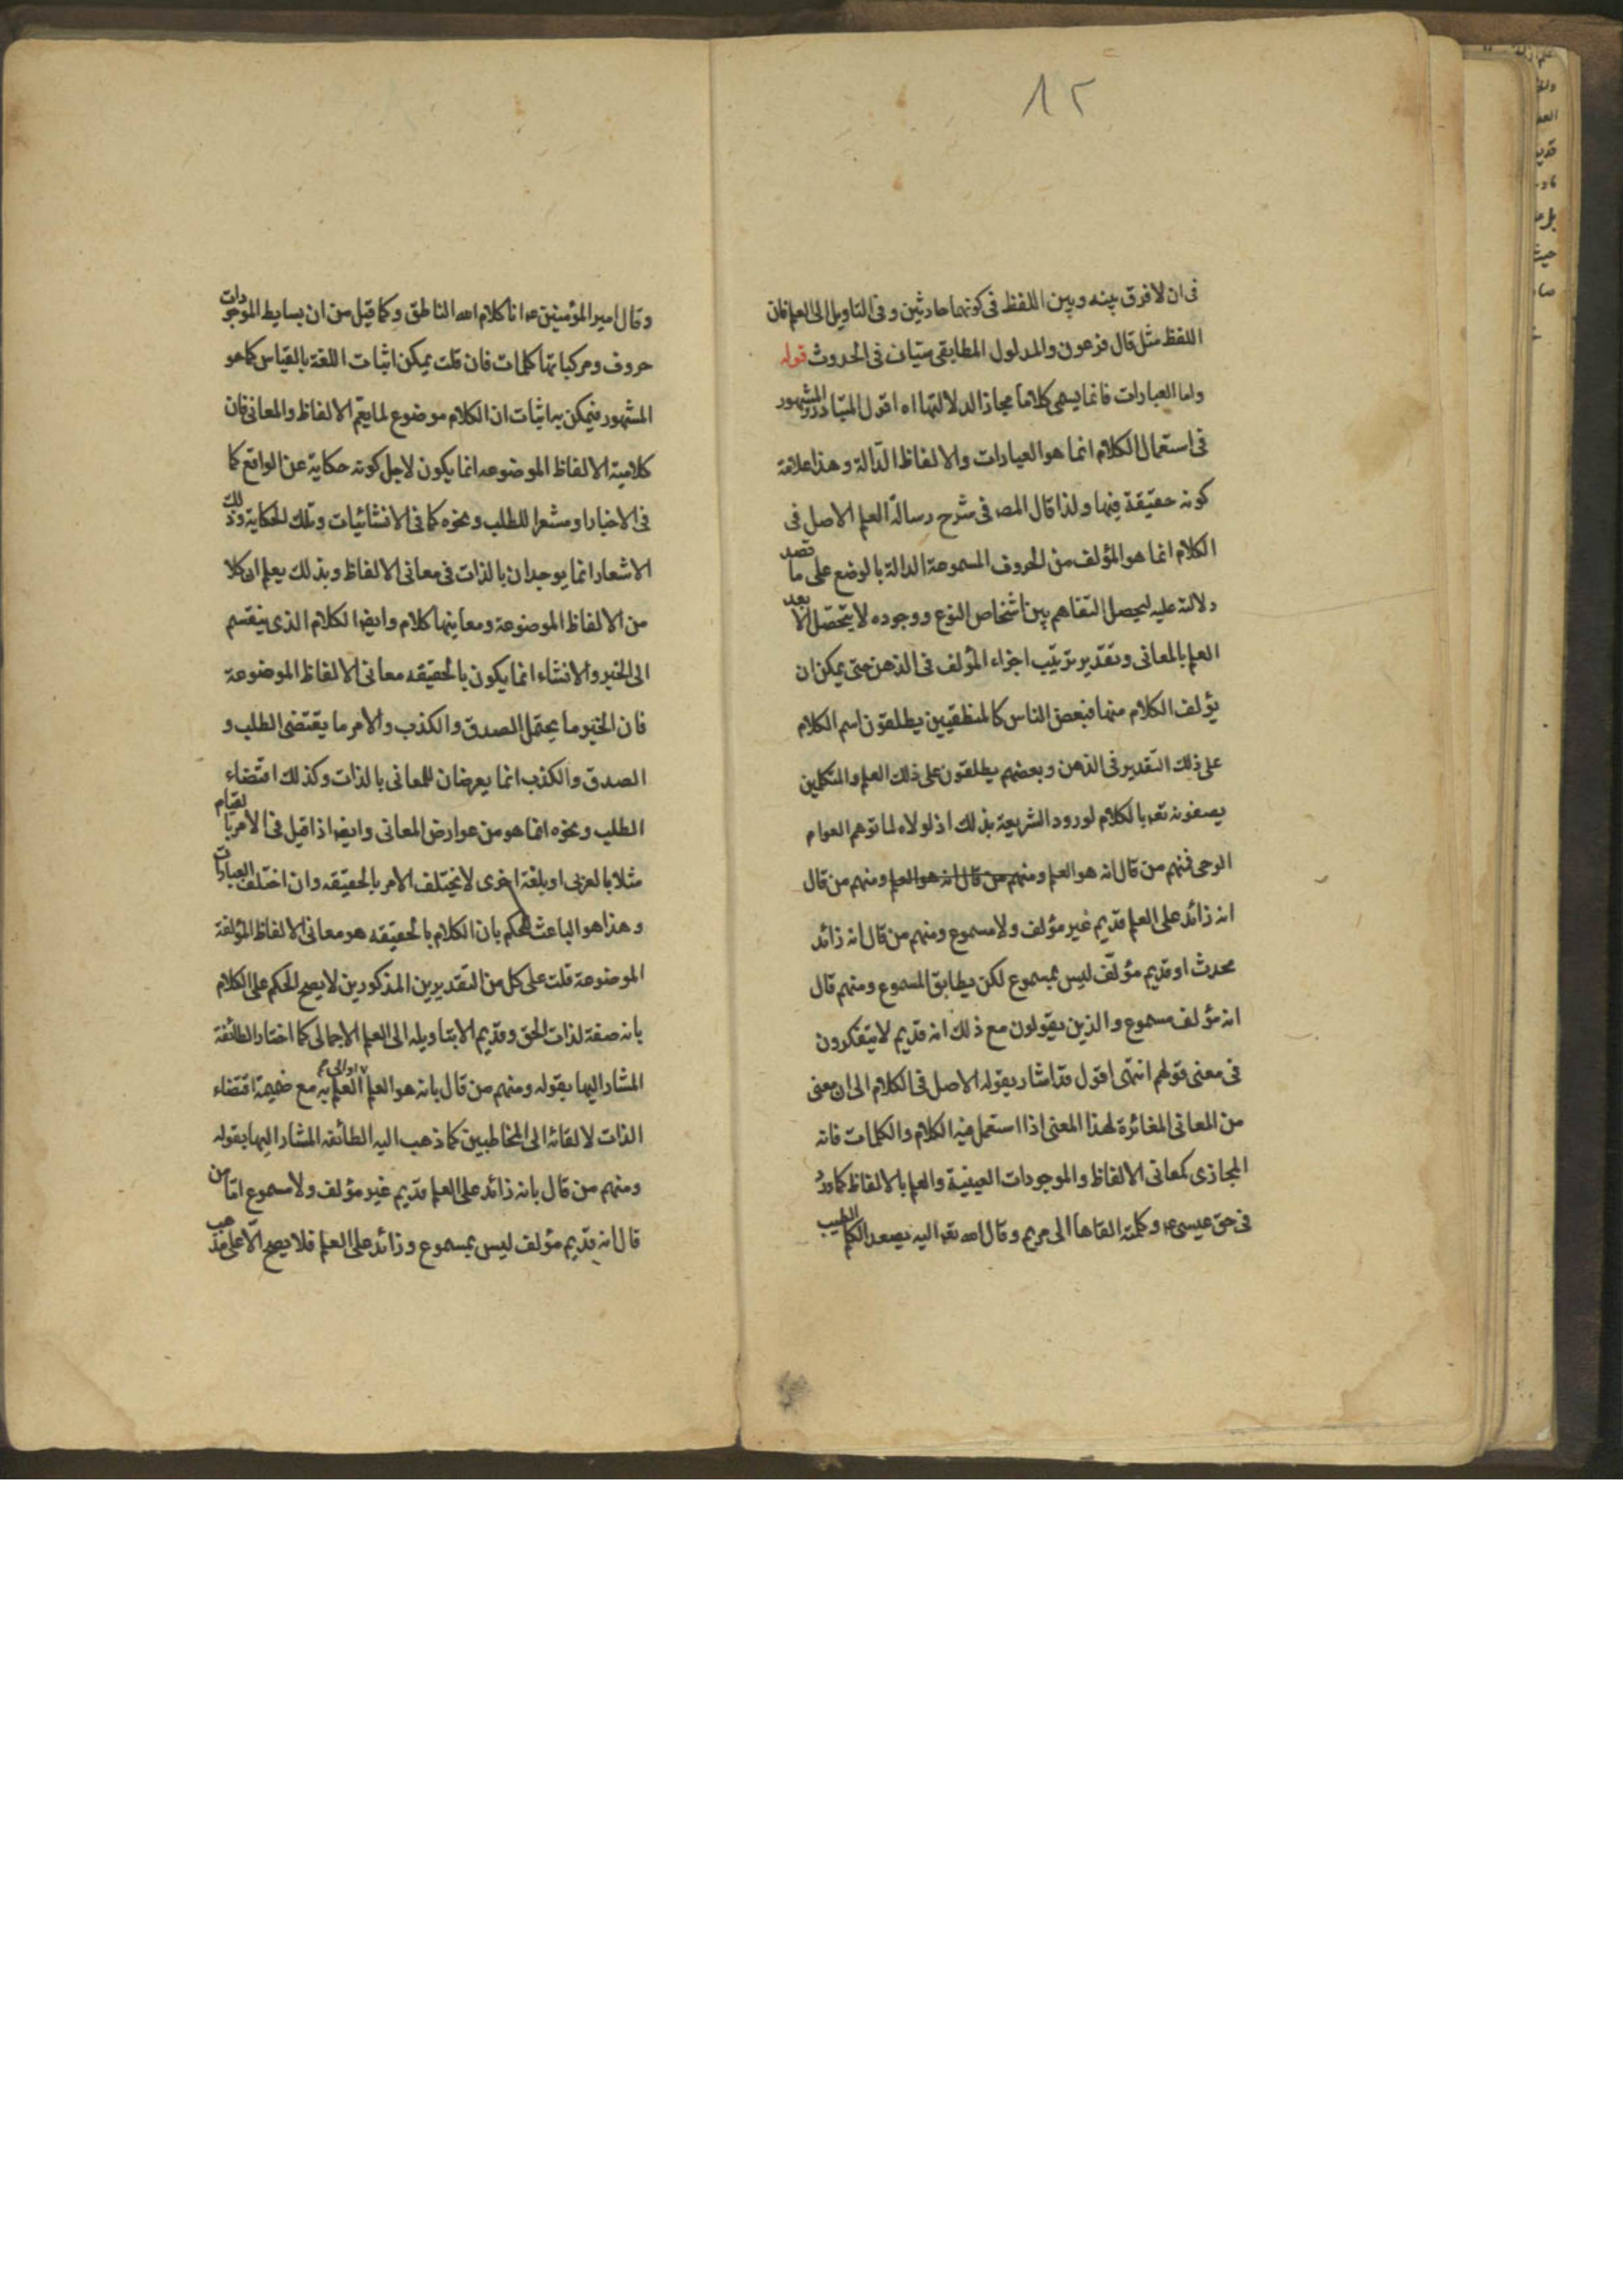 ١٢
فى ان لا فرق بينه وبين اللفظ فى كونهما حادثين وفى التاويل الى العلم فان
اللفظ مثل قال فرعون والمدلول المطابقى سيان فى الحدوث قوله
واما العبارات فانما يسمى كلاما مجازا لدلالتها اه اقول المتبادر المشهور
فى استعمال الكلام انما هو العبارات والالفاظ الدّالة وهذا علامة
كونه حقيقة فيها ولذا قال المصـ فى شرح رسالة العلم الاصل فى
الكلام انما هو المؤلف من الحروف المسموعة الدالة بالوضع على ما قصد
دلالته عليه ليحصل التفاهم بين اشخاص النوع ووجوده لا يتحصّل الّا بعد
العلم بالمعانى وتقدير ترتيب اجزاء المؤلف فى الذهن حتى يمكن ان
يؤلف الكلام منها فبعض الناس كالمنطقيين يطلقون اسم الكلام
على ذلك التقدير فى الذهن وبعضهم يطلقون على ذلك العلم والمتكلمين
يصفونه تعـ بالكلام لورود الشريعة بذلك اذ لولاه لما توهم العوام
الوحى فمنهم من قال انه هو العلم ومنهم من قال انه هو العلم ومنهم من قال
انه زائد على العلم قديم غير مؤلف ولا مسموع ومنهم من قال انه زائد
محدث او قديم مؤلّف ليس بمسموع لكن يطابق المسموع ومنهم قال
انه مؤلف مسموع والذين يقولون مع ذلك انه قديم لا يتفكرون
فى معنى قولهم انتهى اقول قد اشار بقوله الاصل فى الكلام الى ان معنى
من المعانى المغائرة لهذا المعنى اذا استعمل فيه الكلام والكلمات فانه
المجازى كمعانى الالفاظ والموجودات العينية والعلم بالالفاظ كما ورد
فى حق عيسى ع وكلمته القاها الى مريم وقال الله تعـ اليه يصعد الكلم الطيب
وقال امير المؤمنين ع انا كلام الله الناطق وكما قيل من ان بسايط الموجودات
حروف ومركباتها كلمات فان قلت يمكن اثبات اللغة بالقياس كما هو
المشهور فيمكن به اثبات ان الكلام موضوع لما يعّم الالفاظ والمعانى فان
كلامية الالفاظ الموضوعه انما يكون لاجل كونه حكاية عن الواقع كما
فى الاخبار او مشعرا للطلب ونحوه كما فى الانشائيات وتلك الحكاية وذلك
الاشعار انما يوجدان بالذات فى معانى الالفاظ وبذلك يعلم ان كلا
من الالفاظ الموضوعة ومعاينها كلام وايضا الكلام الذى ينقسم
الى الخبر والانشاء انما يكون بالحقيقه معانى الالفاظ الموضوعة
فان الخبر ما يحتمل الصدق والكذب والامر ما يقتضى الطلب و
الصدق والكذب انما يعرضان للمعانى بالذات وكذلك اقتضاء
الطلب ونحوه انما هو من عوارض المعانى وايضا اذا قيل فى الامر بالقيام
مثلا بالعربى او بلغة اخرى لا يختلف الامر بالحقيقه وان اختلف العبارات
وهذا هو الباعث للحكم بان الكلام بالحقيقه هو معانى الالفاظ المؤلفة
الموضوعة قلت على كل من التقديرين المذكورين لا يصح الحكم على الكلام
بانه صفة لذات الحق وقديم الا بتاويله الى العلم الاجمالى كما اختار الطائفة
المشار اليها بقوله ومنهم من قال بانه هو العلم او الى العلم به مع ضميمة اقتضاء
الذات لالقائه الى المخاطبين كما ذهب اليه الطائفه المشار اليها بقوله
ومنهم من قال بانه زائد على العلم قديم غير مؤلف ولا مسموع امّا من
قال انه قديم مؤلف ليس بمسموع وزائد على العلم فلا يصح الّا على مذهب